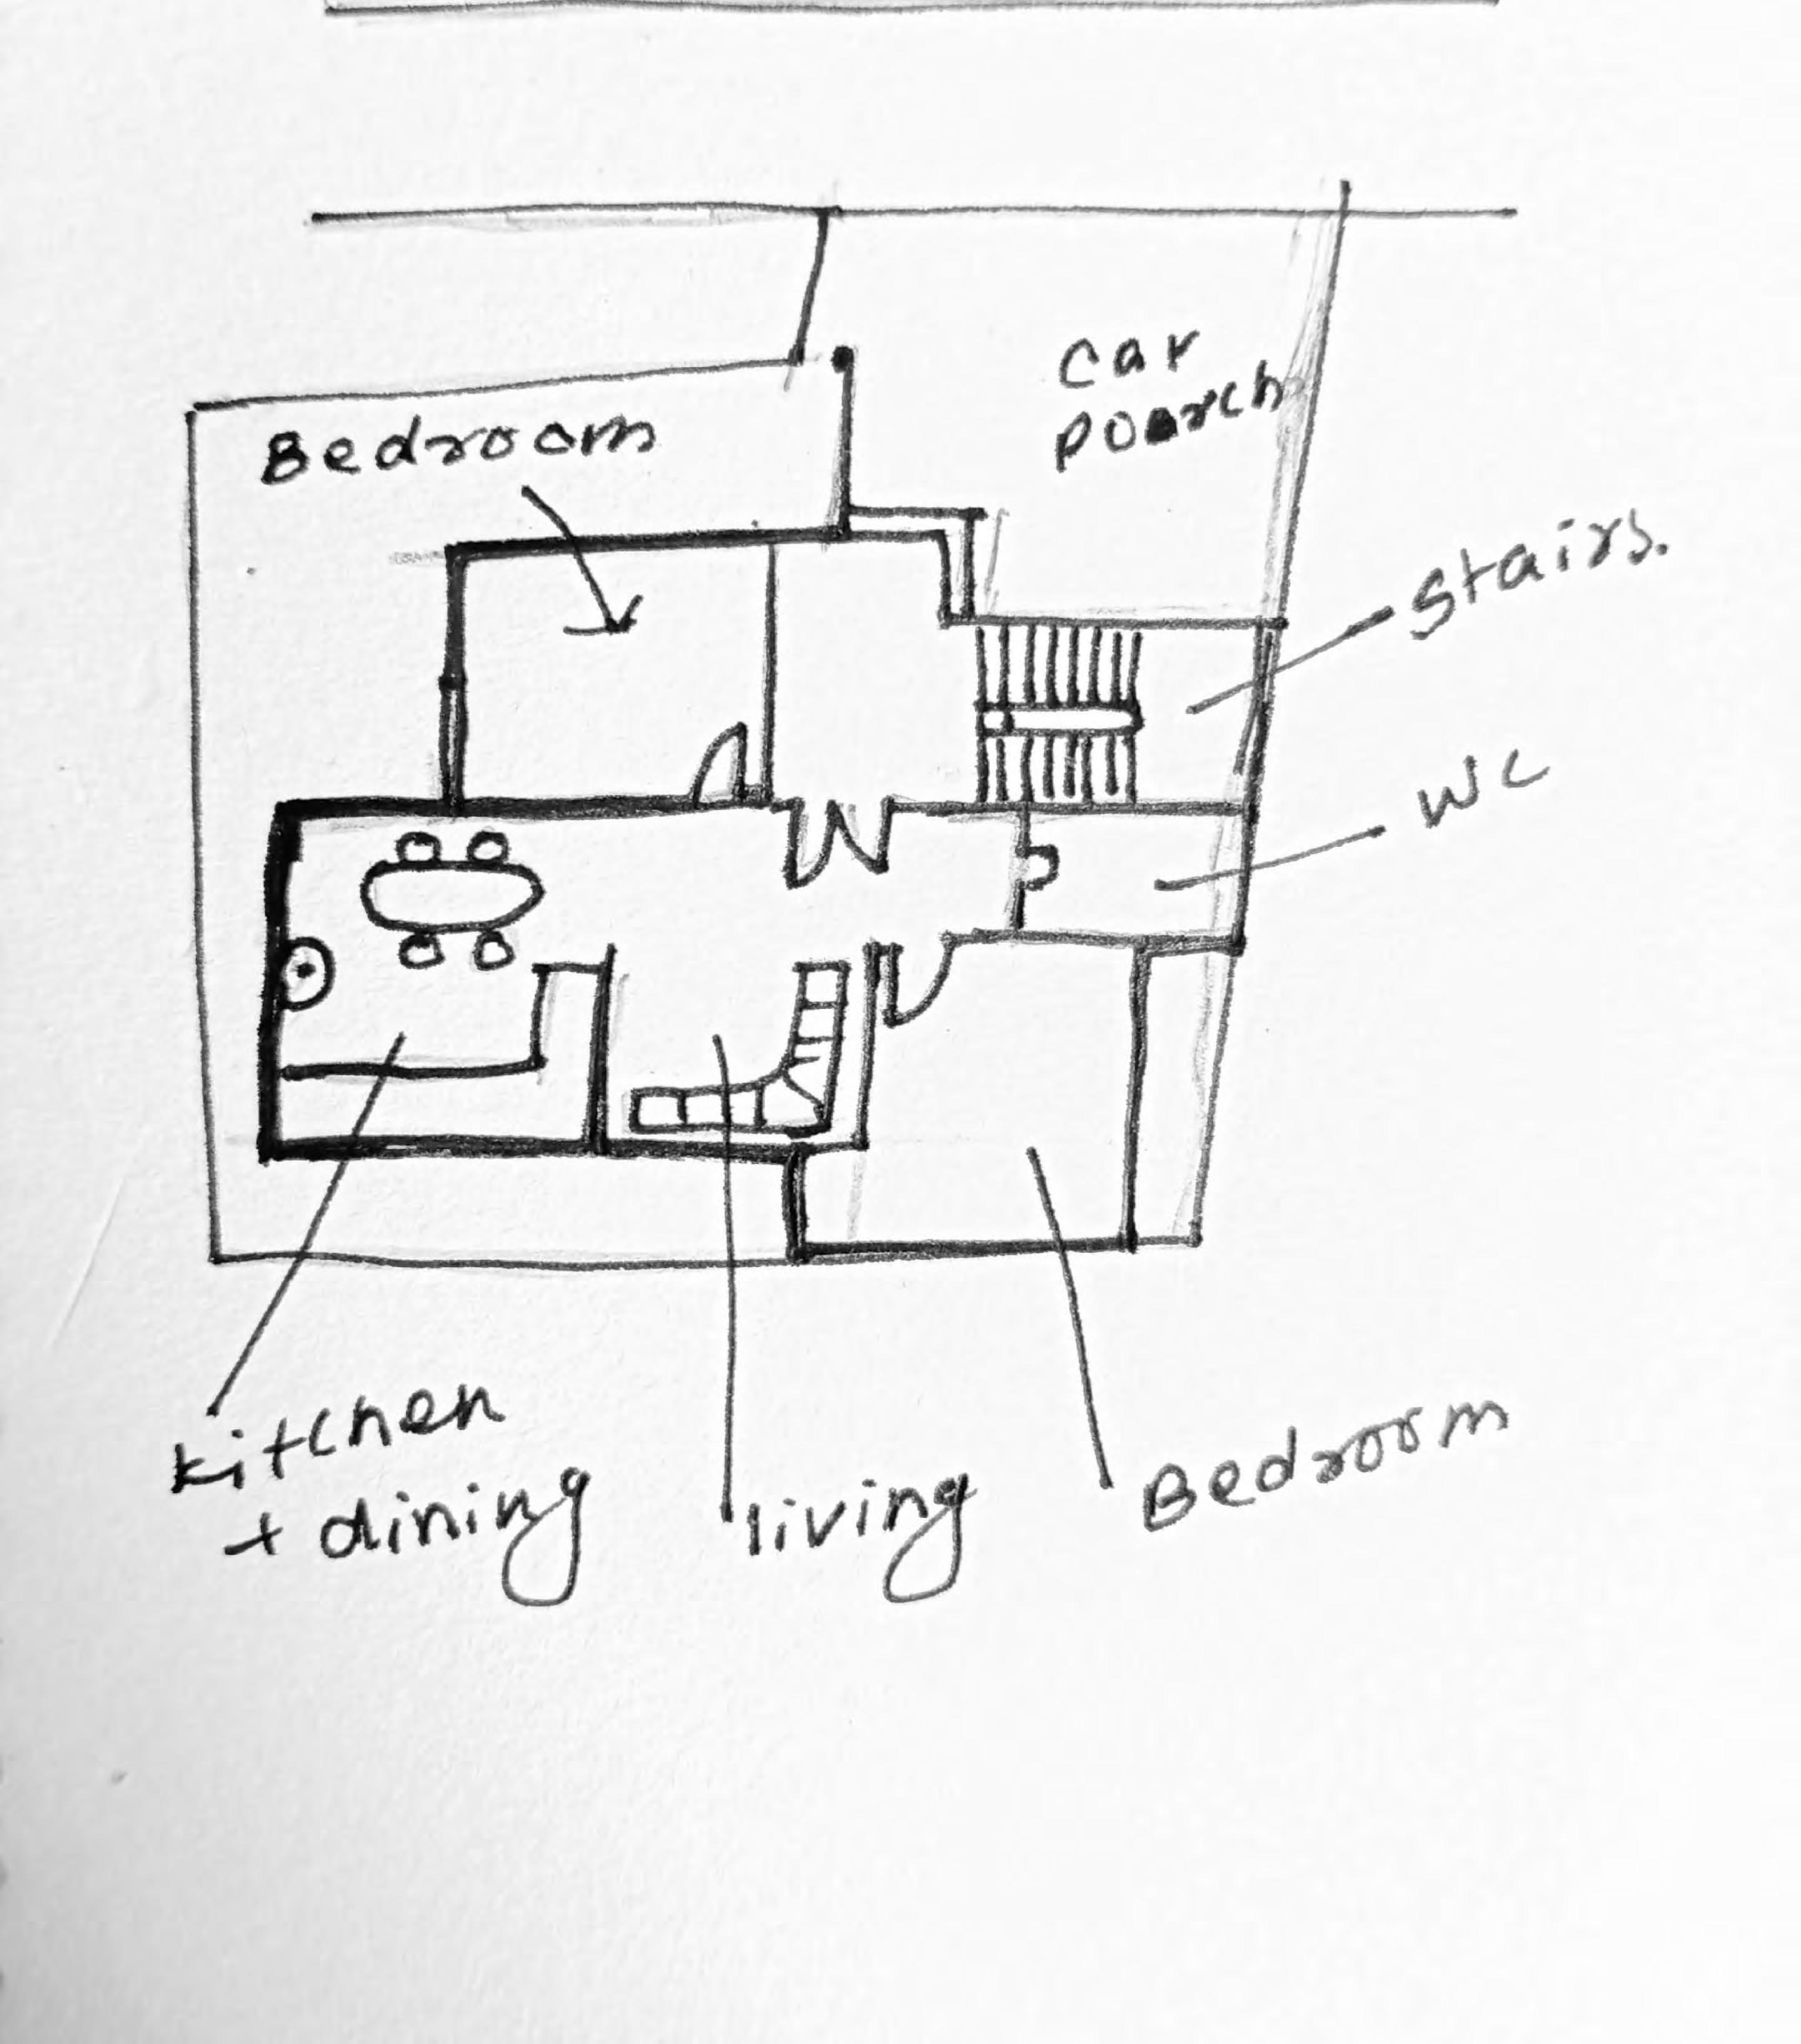 car
poarch
Bedroom
Stairs.
WC
kitchen
+ dining
living
Bedroom